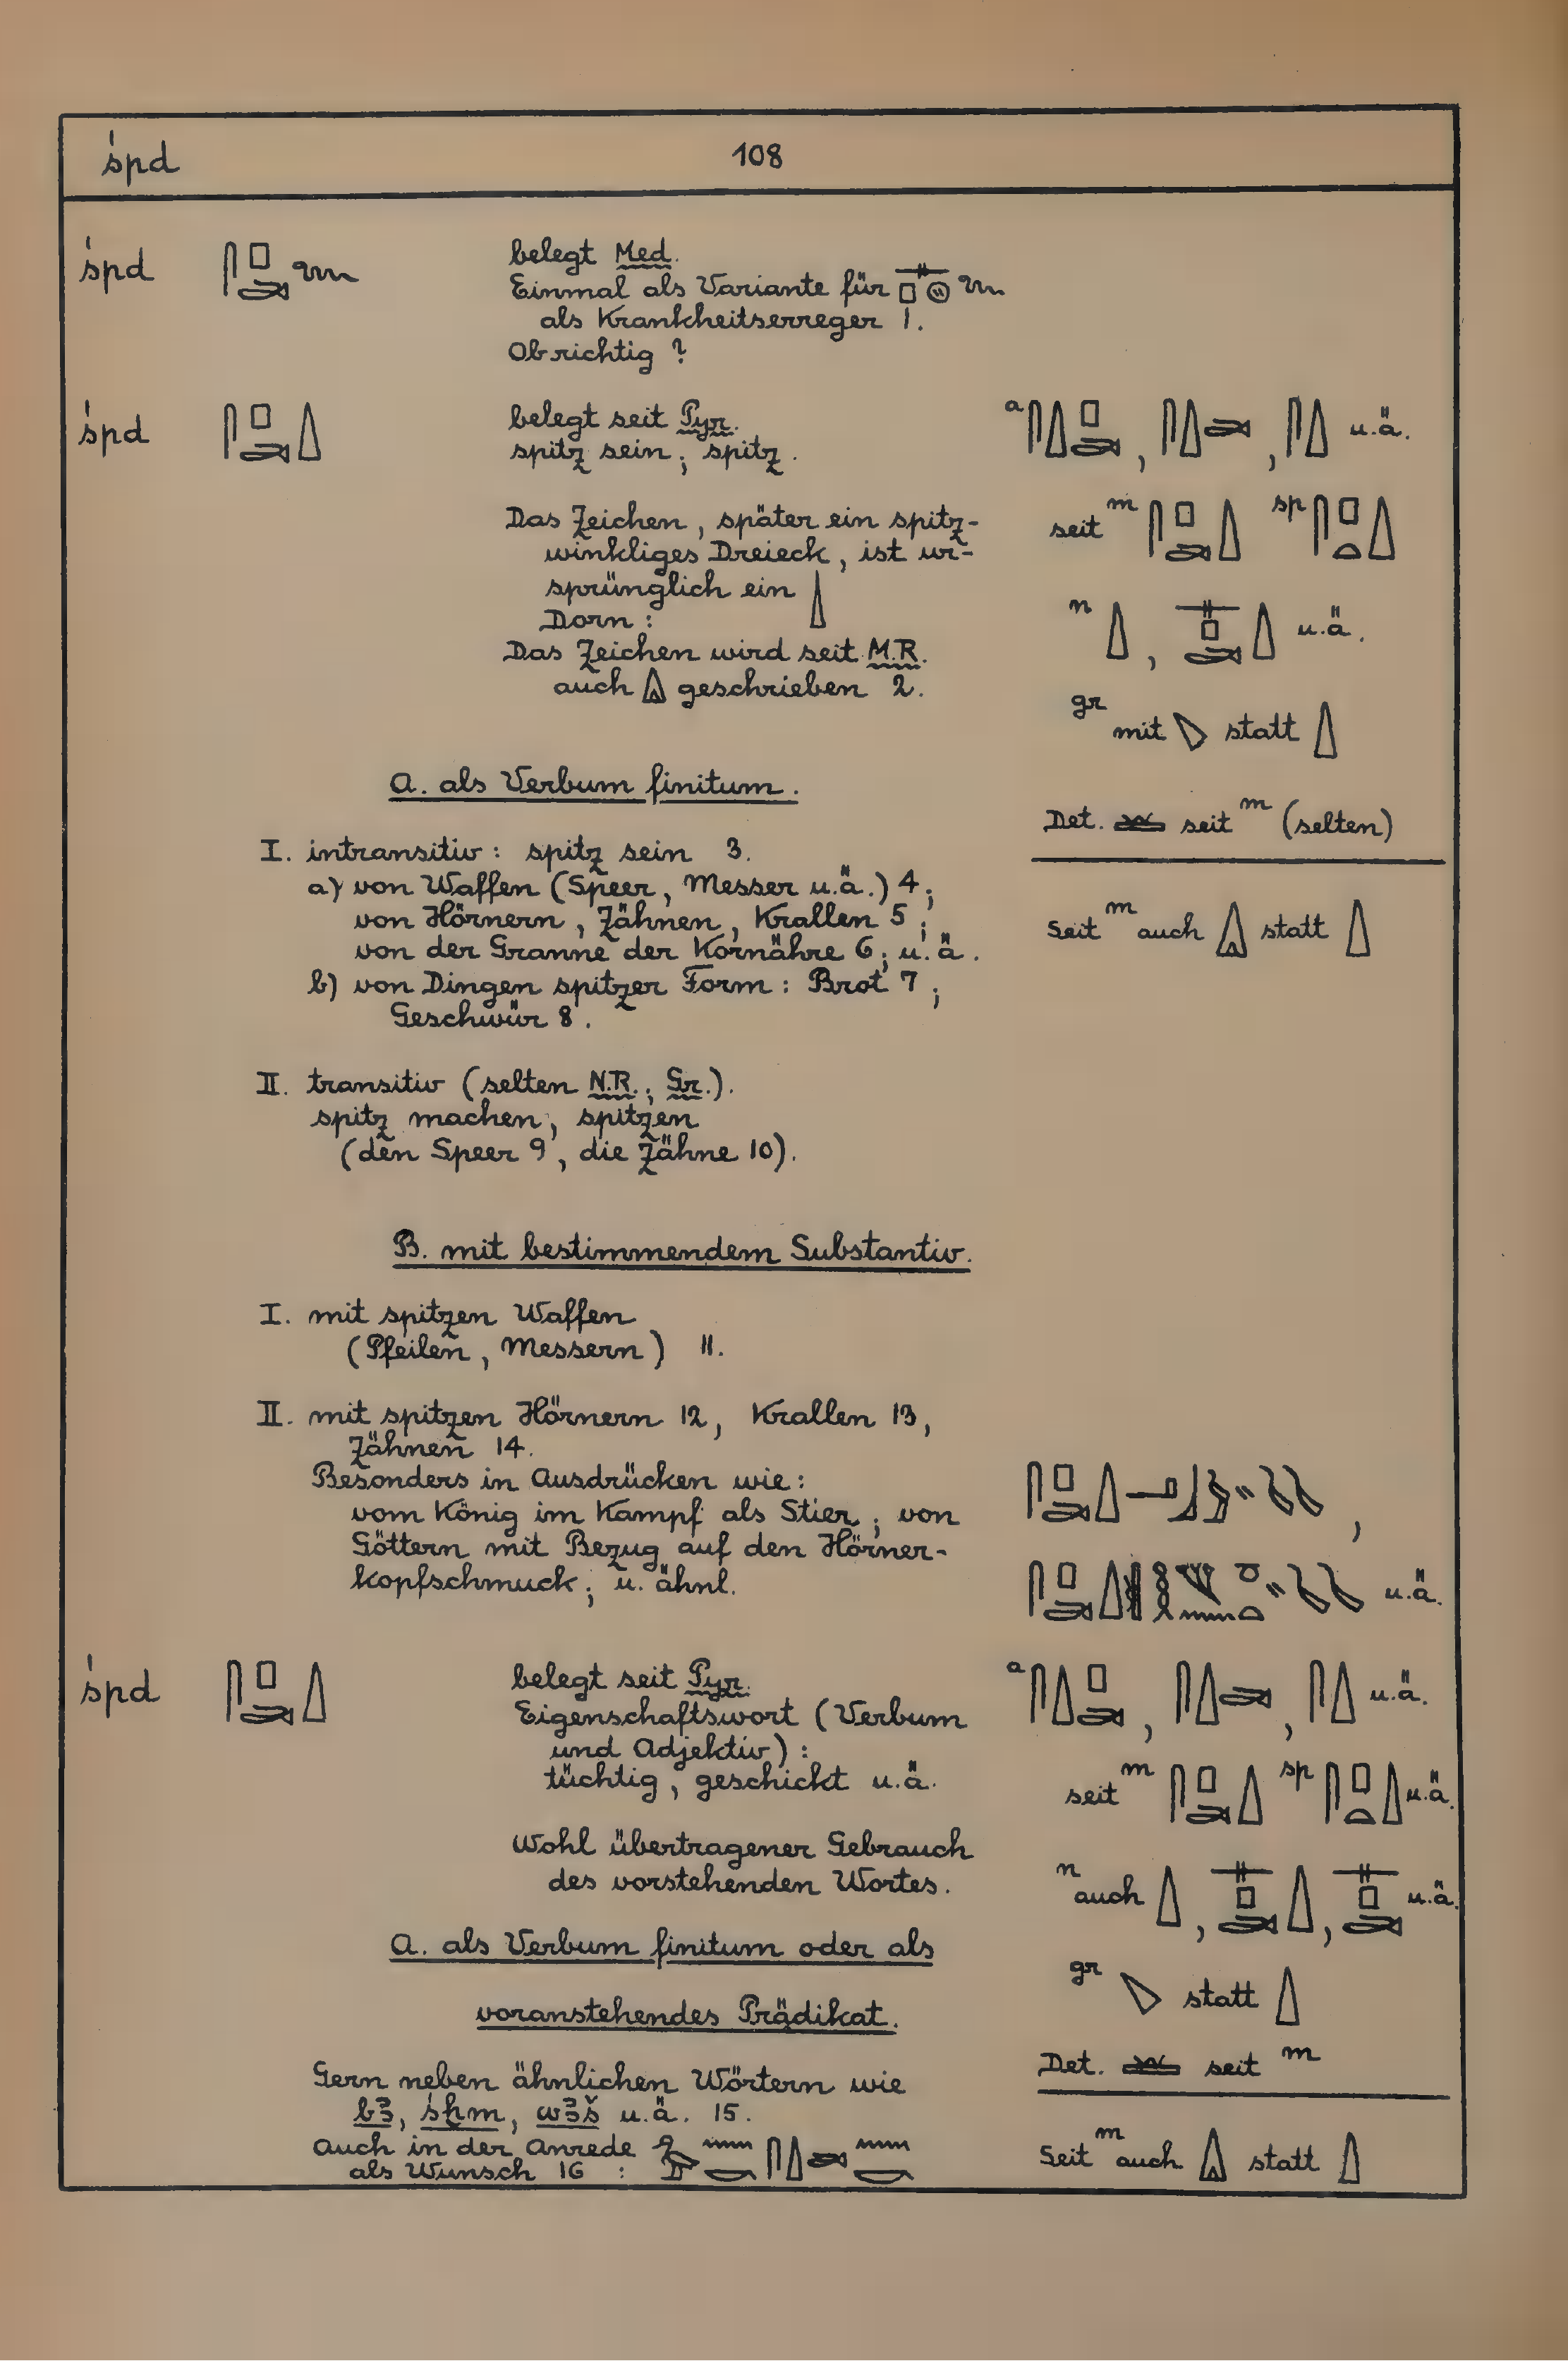 śpd 108
śpd 𓋴𓊪𓂧𓆙 belegt Med.
Einmal als Variante für
als Krankheitserreger 1.
Ob richtig ?
śpd 𓋴𓊪𓂧𓇮 belegt seit Pyr.
spitz sein; spitz.
Das Zeichen, später ein spitz-
winkliges Dreieck, ist ur-
sprünglich ein
Dorn :
Das Zeichen wird seit M.R.
auch geschrieben 2.
a , , u.ä.
seit m sp
n , u.ä.
gr
mit statt
Det. seit m (selten)
Seit m auch statt
A. als Verbum finitum.
I. intransitiv: spitz sein 3.
a) von Waffen (Speer, Messer u.ä.) 4;
von Hörnern, Zähnen, Krallen 5;
von der Granne der Kornähre 6; u.ä.
b) von Dingen spitzer Form: Brot 7;
Geschwür 8.
II. transitiv (selten N.R.; Gr.).
spitz machen, spitzen
(den Speer 9, die Zähne 10).
B. mit bestimmendem Substantiv.
I. mit spitzen Waffen
(Pfeilen, Messern) 11.
II. mit spitzen Hörnern 12, Krallen 13,
Zähnen 14.
Besonders in Ausdrücken wie:
vom König im Kampf als Stier; von
Göttern mit Bezug auf den Hörner-
kopfschmuck; u. ähnl.
,
u.ä.
śpd belegt seit Pyr.
Eigenschaftswort (Verbum
und Adjektiv) :
tüchtig, geschickt u.ä.
Wohl übertragener Gebrauch
des vorstehenden Wortes.
a , , u.ä.
seit m sp u.ä.
n auch , , u.ä.
gr statt
Det. seit m
Seit m auch statt
A. als Verbum finitum oder als
voranstehendes Prädikat.
Gern neben ähnlichen Wörtern wie
bꜣ, śḫm, wꜣš u.ä. 15.
Auch in der Anrede
als Wunsch 16 :